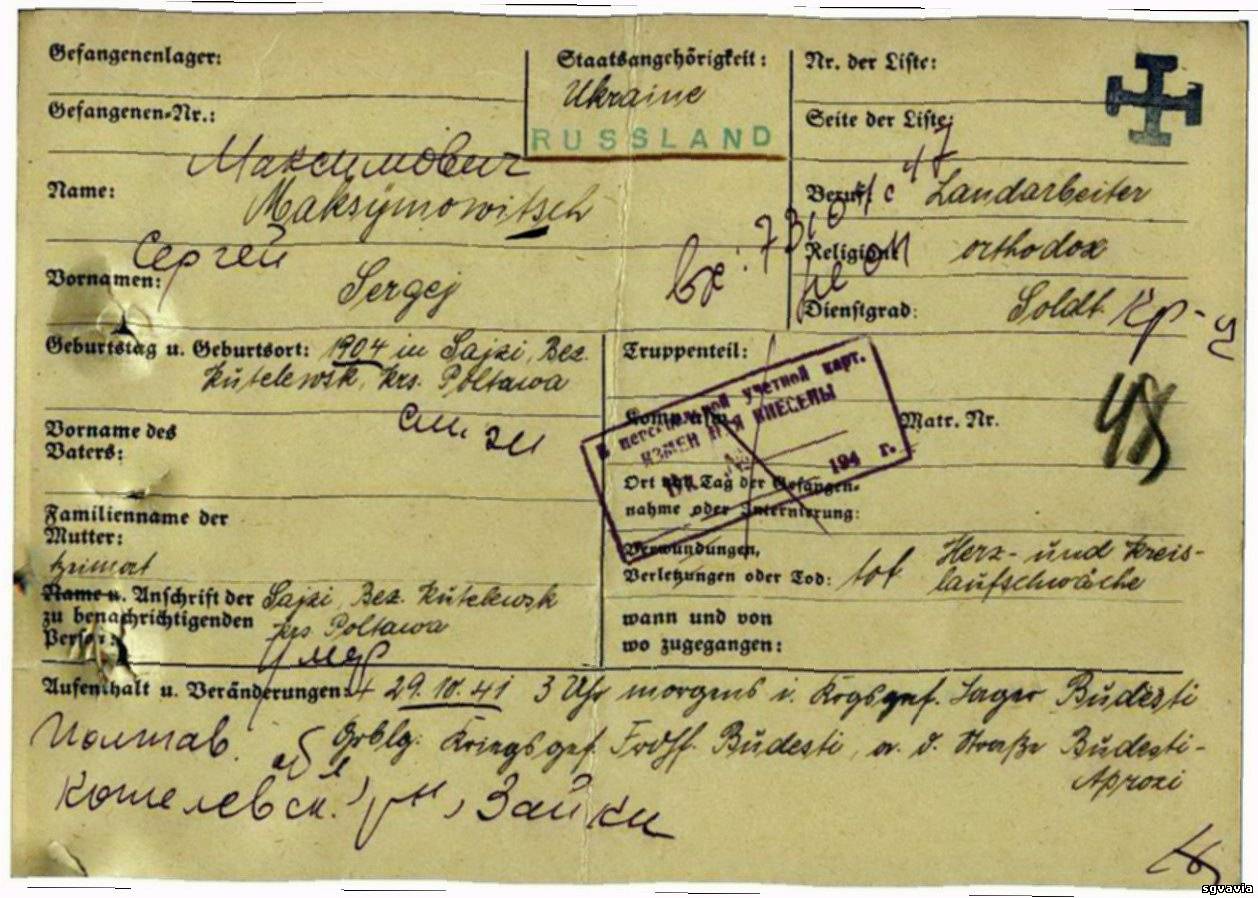 Gefangenenlager:
Staatsangehörigkeit:
Ukraine
RUSSLAND
Nr. der Liste:
Gefangenen-Nr.:
Seite der Liste:
Максимович
Name: Maksymowitsch
Beruf: Landarbeiter
47
Сергей
Religion: orthodox
Vornamen: Sergej
Вх:
Dienstgrad: Soldt. Кр-ц
Geburtstag u. Geburtsort: 1904 in Sajzi, Bez.
Kutelewsk, Krs. Poltawa
Truppenteil:
В персональной учетной карт.
ИЗМЕНЕНИЯ ВНЕСЕНЫ
194 г.
Matr. Nr.
48
Vorname des
Vaters:
Ort und Tag der Gefangen-
nahme oder Internierung:
Familienname der
Mutter:
Heimat
Verwundungen,
Verletzungen oder Tod: tot Herz- und Kreis-
laufschwäche
Name u. Anschrift der Sajzi, Bez. Kutelewsk
zu benachrichtigenden Krs Poltawa
Person:
wann und von
wo zugegangen:
умер
Aufenthalt u. Veränderungen: + 29.10.41 3 Uhr morgens i. Krgsgef. Lager Budesti
Grblg: Kriegsgef. Frdhf. Budesti, a. d. Straße Budesti-
Aprozi
Полтав. обл
Котелевск. р-н, Зайки
sgvavia